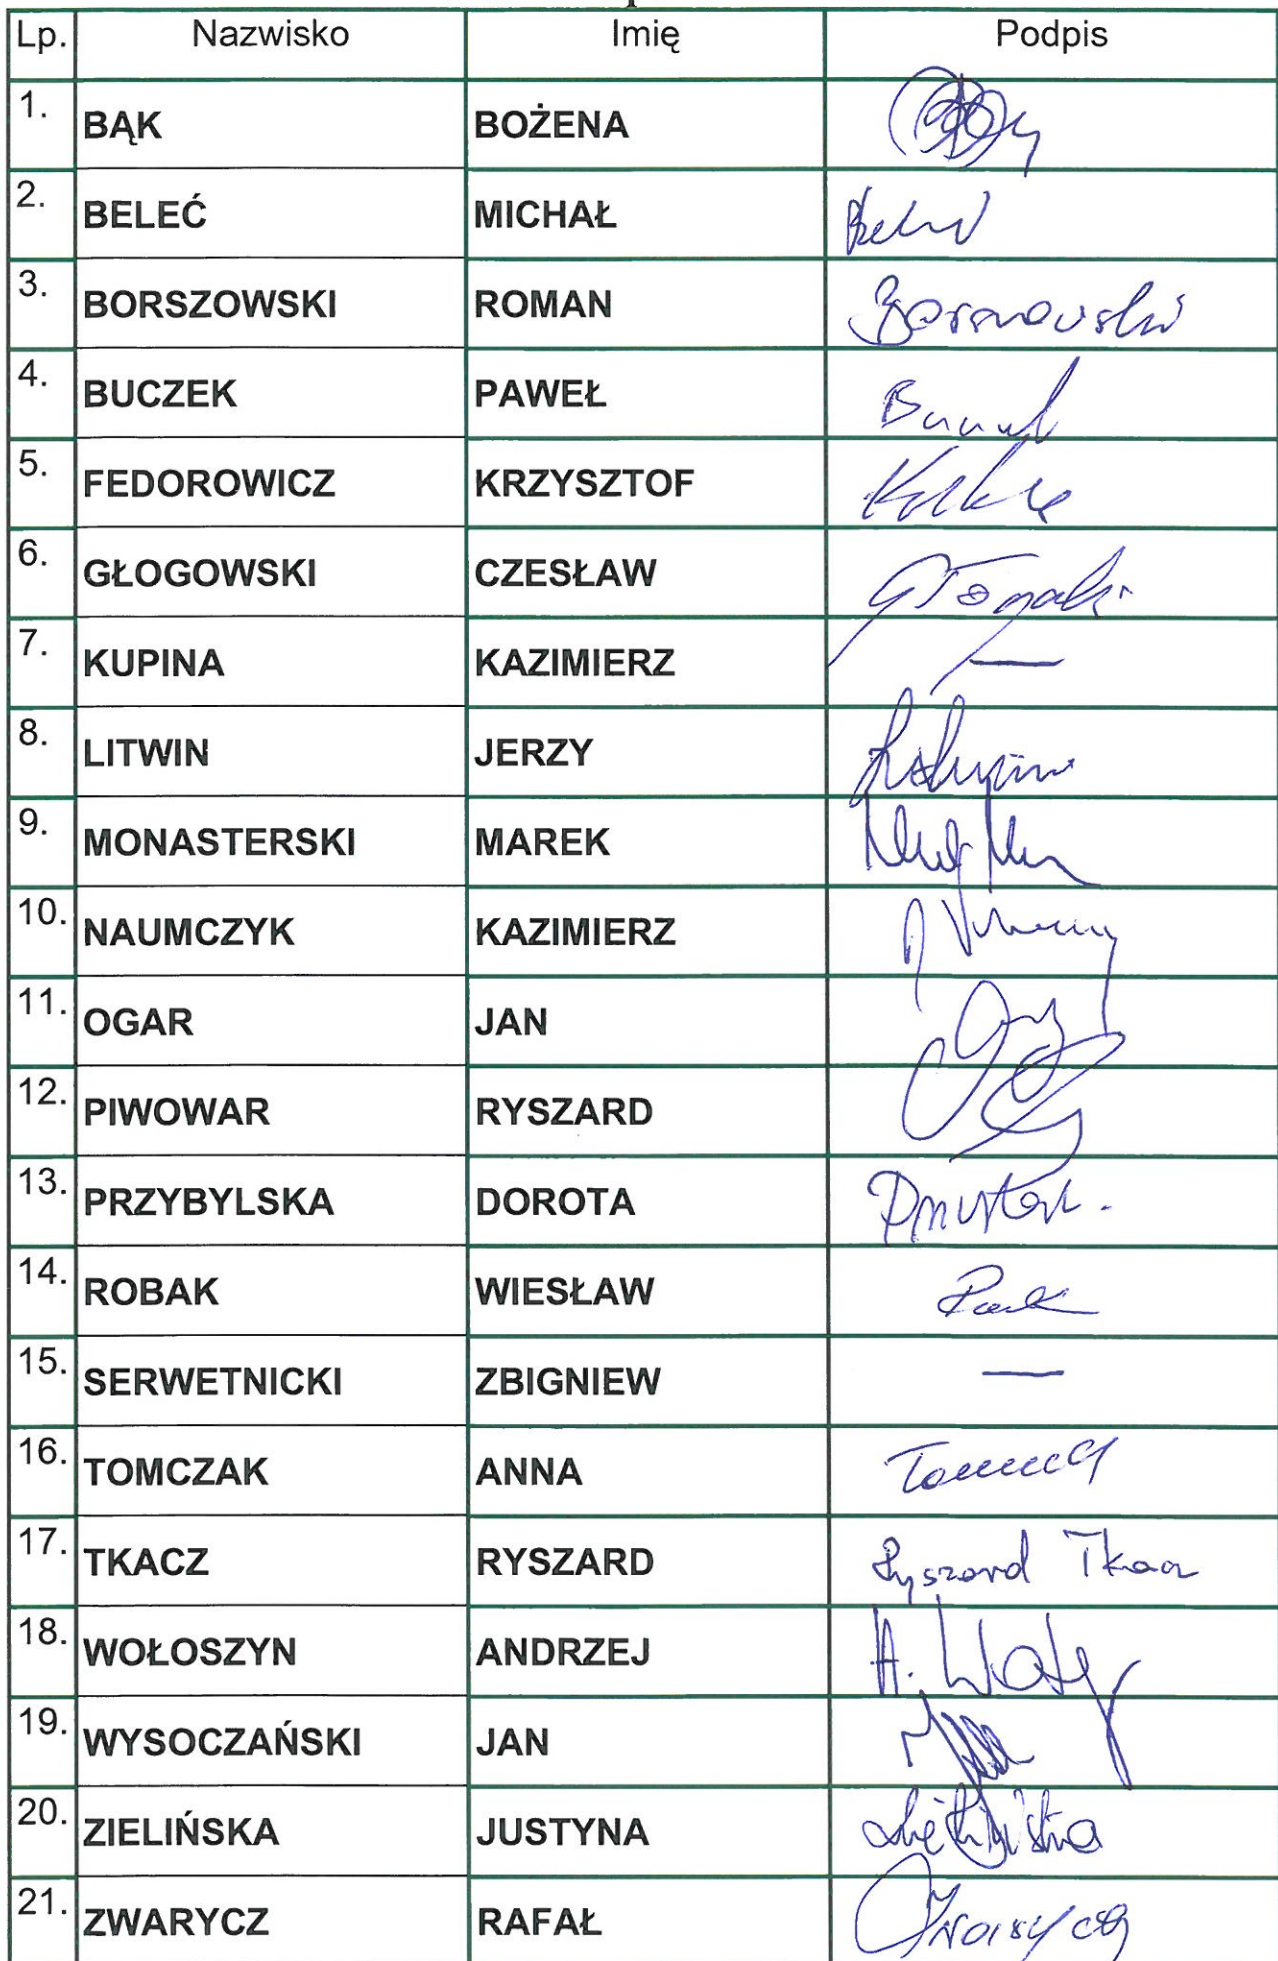 Lp. Nazwisko Imię Podpis
1. BĄK BOŻENA
2. BELEĆ MICHAŁ
3. BORSZOWSKI ROMAN
4. BUCZEK PAWEŁ
5. FEDOROWICZ KRZYSZTOF
6. GŁOGOWSKI CZESŁAW
7. KUPINA KAZIMIERZ —
8. LITWIN JERZY
9. MONASTERSKI MAREK
10. NAUMCZYK KAZIMIERZ
11. OGAR JAN
12. PIWOWAR RYSZARD
13. PRZYBYLSKA DOROTA
14. ROBAK WIESŁAW
15. SERWETNICKI ZBIGNIEW —
16. TOMCZAK ANNA
17. TKACZ RYSZARD Ryszard Tkacz
18. WOŁOSZYN ANDRZEJ
19. WYSOCZAŃSKI JAN
20. ZIELIŃSKA JUSTYNA
21. ZWARYCZ RAFAŁ